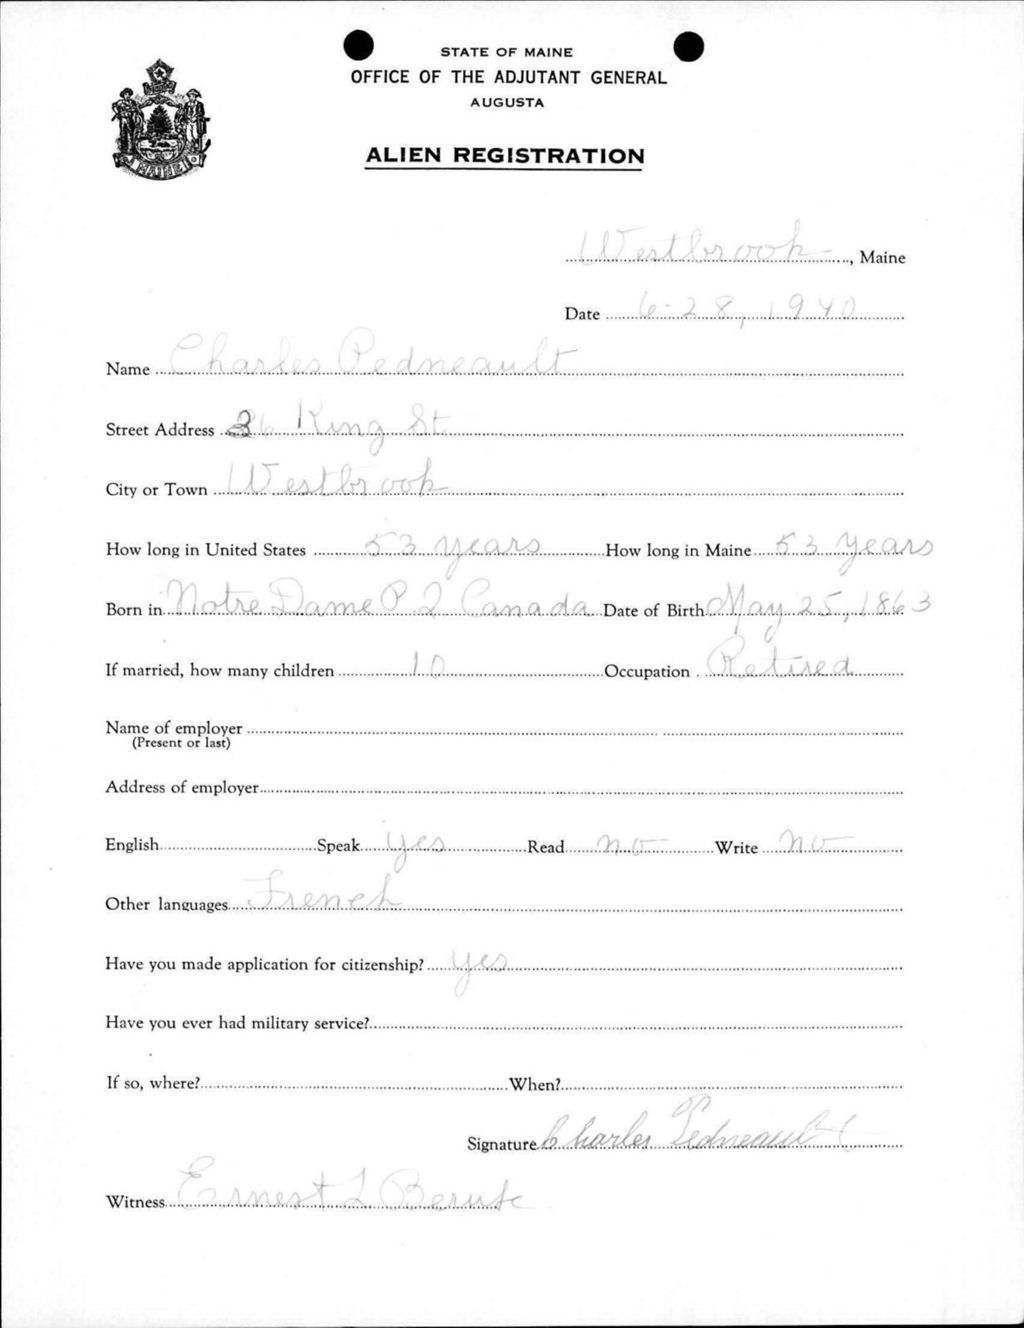 STATE OF MAINE
OFFICE OF THE ADJUTANT GENERAL
AUGUSTA
ALIEN REGISTRATION
MAINE
Westbrook, Maine
Date 6-28, 1940
Name Charles Pedneault
Street Address 36 King St.
City or Town Westbrook
How long in United States 53 years How long in Maine 53 years
Born in Notre Dame P Q Canada Date of Birth May 25, 1863
If married, how many children 10 Occupation Retired
Name of employer
(Present or last)
Address of employer
English Speak yes Read no Write no
Other languages French
Have you made application for citizenship? yes
Have you ever had military service?
If so, where? When?
Signature Charles Pedneault
Witness Ernest L